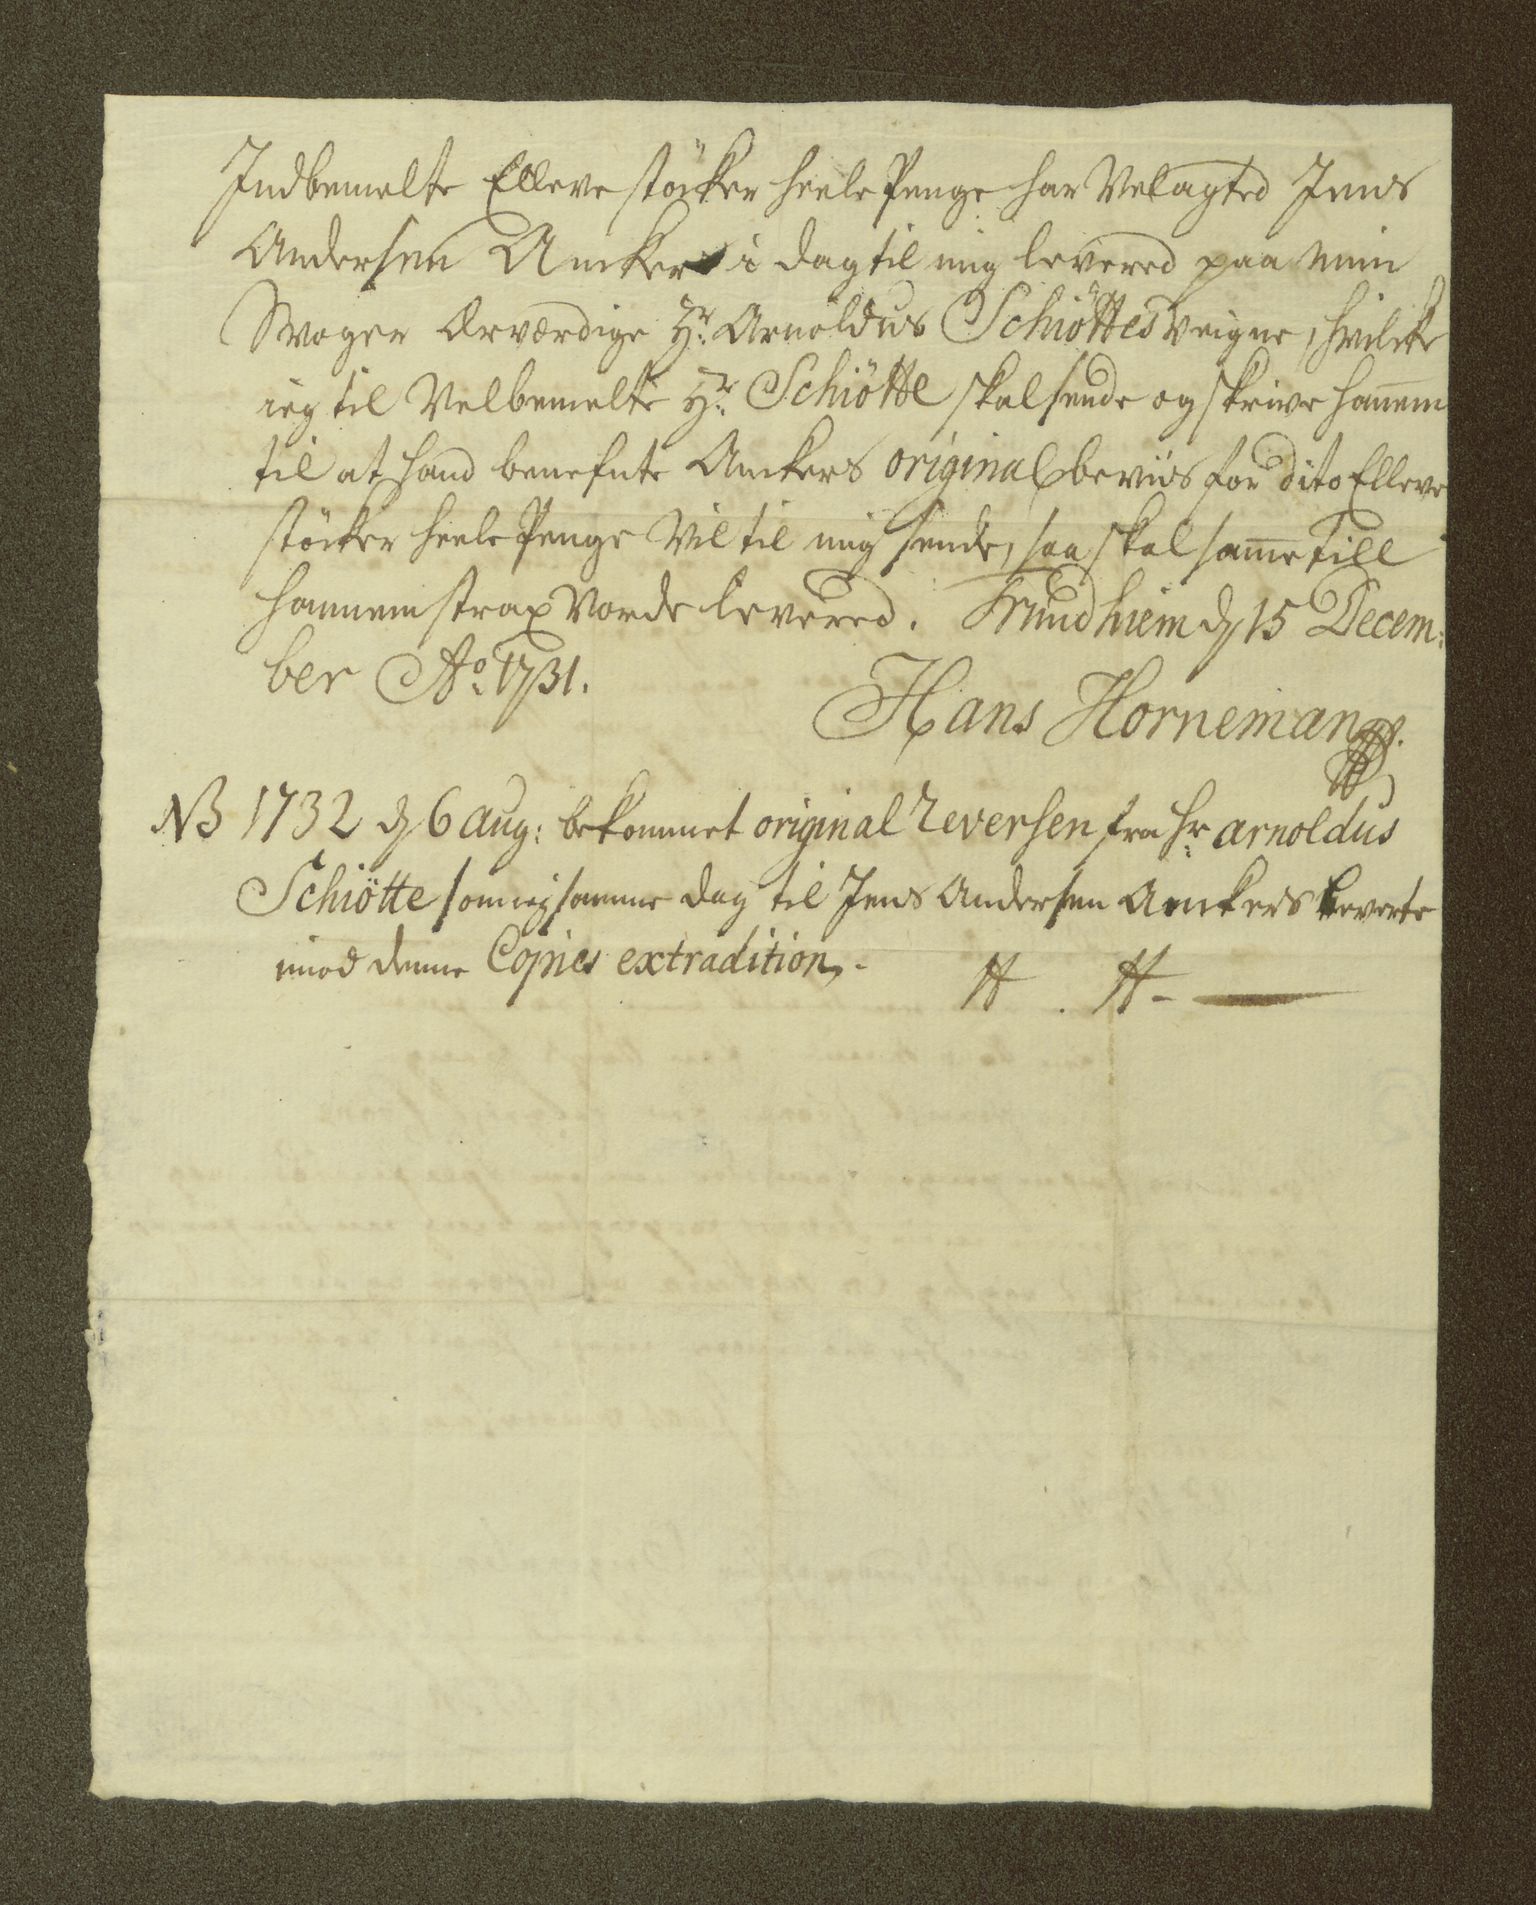 Indbemelte Elleve stöcker heele Penge har Velagted Jens
Andersen Ancker i dag til mig levered paa min
Svoger Ærværdige Hr: Arnoldus Schiöttes Veigne, hvilcke
ieg til Velbemelte Hr: Schiötte skal sende og skrive hannem
til at hand benefnte Anckers original beviis for dito Elleve
stöcker heele Penge Vil til mig sende, saa skal same till
hannem strax Vorde levered. Trundhiem d 15 Decem:
ber Ao: 1731.
Hans Horneman
NB 1732 d 6 aug: bekommet original Reversen fra Hr: Arnoldus
Schiötte som ieg samme dag til Jens Andersen Anckers leverte
imod denne Copies extradition.
H. H.